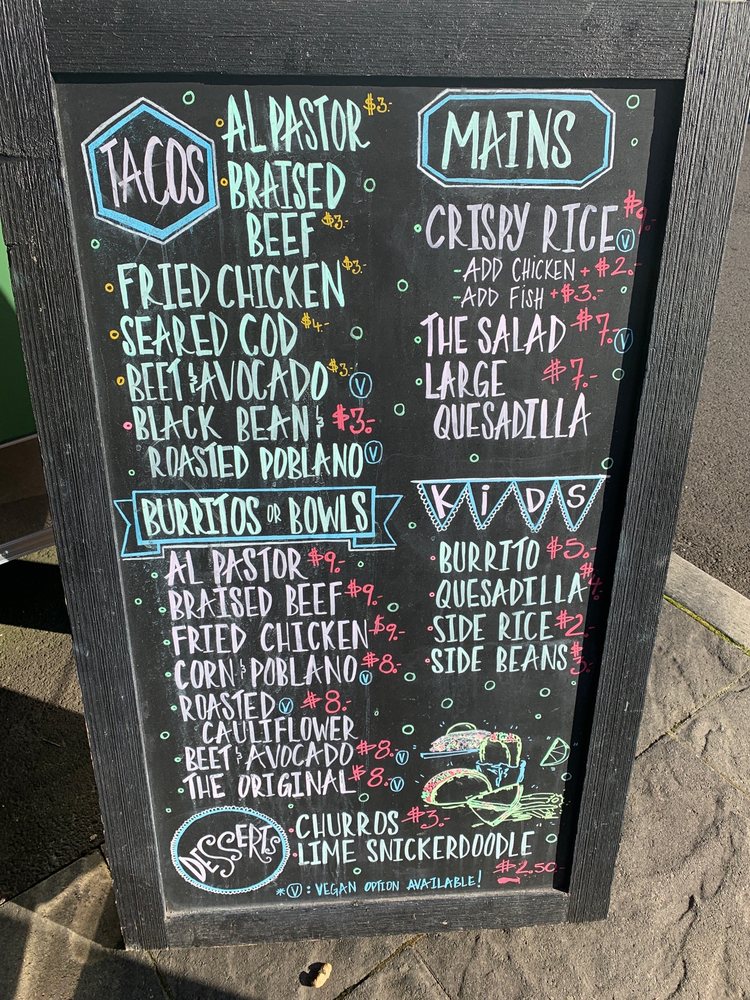 TACOS
AL PASTOR $3-
BRAISED
BEEF $3-
FRIED CHICKEN $3-
SEARED COD $4-
BEET & AVOCADO $3- V
BLACK BEAN & $3-
ROASTED POBLANO V
BURRITOS OR BOWLS
AL PASTOR $9-
BRAISED BEEF $9-
FRIED CHICKEN $9-
CORN & POBLANO $8- V
ROASTED V $8-
CAULIFLOWER
BEET & AVOCADO $8- V
THE ORIGINAL $8- V
DESSERTS
CHURROS $3-
LIME SNICKERDOODLE
$2.50
*V: VEGAN OPTION AVAILABLE!
MAINS
CRISPY RICE $9- V
-ADD CHICKEN +$2-
-ADD FISH +$3-
THE SALAD $7- V
LARGE $7-
QUESADILLA
KiDS
BURRITO $5-
QUESADILLA $4-
SIDE RICE $2-
SIDE BEANS